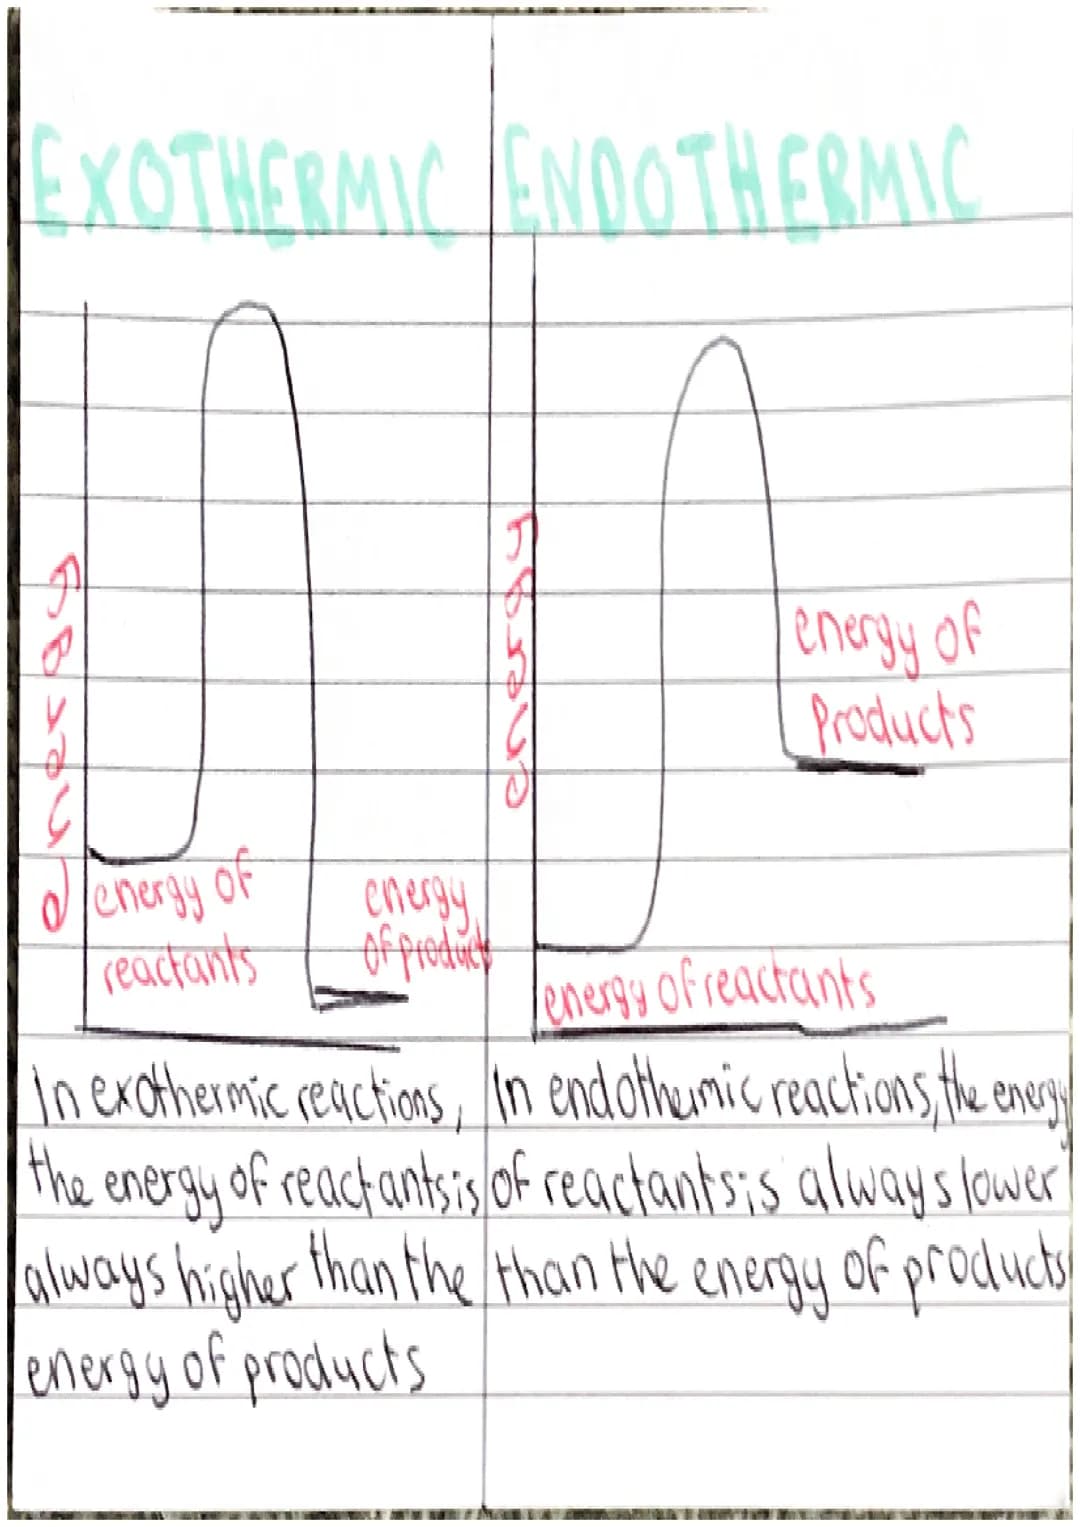 EXOTHERMIC
energy
energy of
reactants
energy
of products
In exothermic reactions,
the energy of reactants is
always higher than the
energy of products
ENDOTHERMIC
energy
energy of
Products
energy of reactants
In endothermic reactions, the energy
of reactants is always lower
than the energy of products